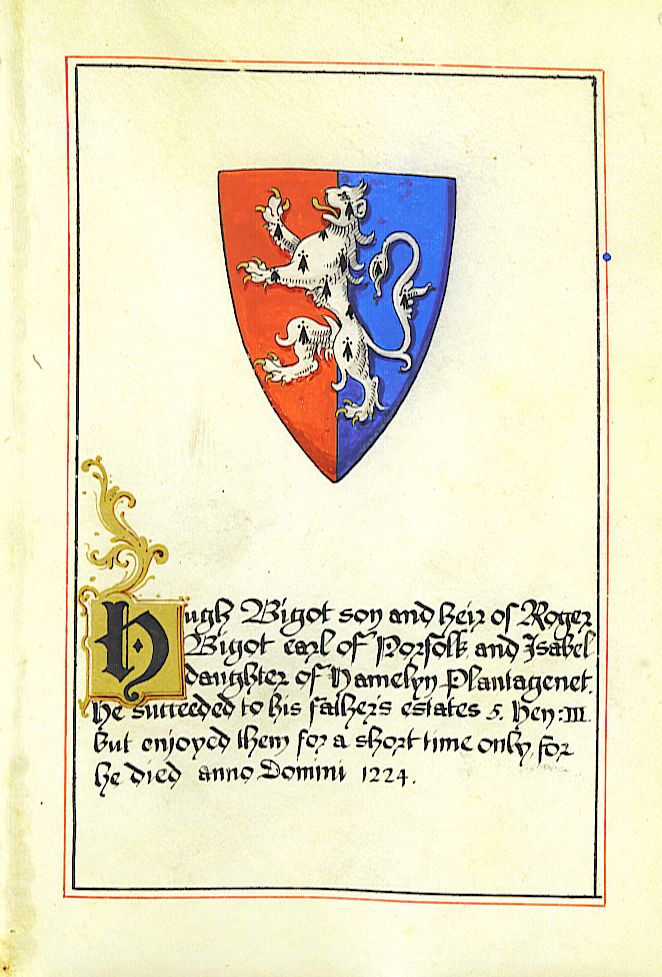 Hugh Bigot son and heir of Roger
Bigot earl of Norfolk and Isabel
daughter of Hamelyn Plantagenet.
He succeeded to his father's estates 5. Hen: III.
but enjoyed them for a short time only, for
he died anno Domini 1224.